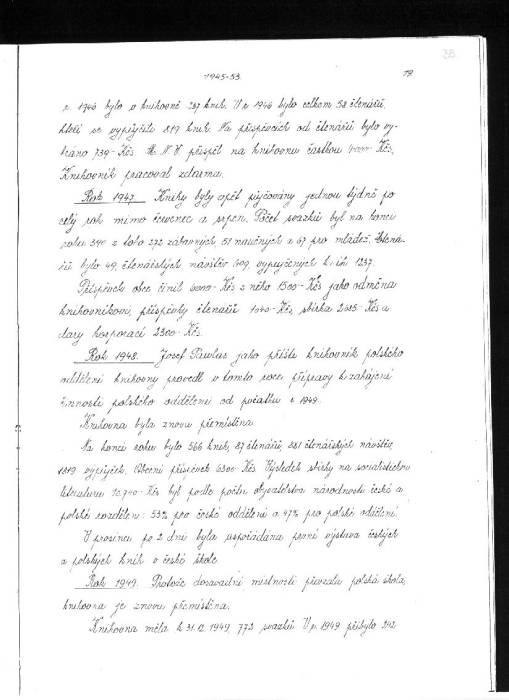 38
1945-53.
19
r. 1946 bylo v knihovně 237 knih. V r. 1946 bylo celkem 58 čtenářů,
kteří se vypůjčili 819 knih. Na příspěvcích od čtenářů bylo vy-
bráno 739- Kčs. M. N. V. přispěl na knihovnu částkou Kčs,
Knihovník pracoval zdarma.
Rok 1947. Knihy byly opět půjčovány jednou týdně po
celý rok mimo červenec a srpen. Počet svazků byl na konci
roku 390 z toho 272 zábavných 51 naučných a 67 pro mládež. Čtená-
řů bylo 49, čtenářských návštěv 609, vypůjčených knih 1237.
Příspěvek obce činil 6000- Kčs z něho 1500- Kčs jako odměna
knihovníkovi, příspěvky čtenářů Kčs, sbírka Kčs a
dary korporací 2300- Kčs.
Rok 1948. Josef Pawlas jako příští knihovník polského
oddělení knihovny provedl v tomto roce přípravy k zahájení
činnosti polského oddělení od počátku r. 1949.
Knihovna byla znovu přemístěna.
Na konci roku bylo 566 knih, 87 čtenářů, 881 čtenářských návštěv,
1819 výpůjček. Obecní příspěvek 6300- Kčs. Výsledek sbírky na socialistickou
literaturu 10.740- Kčs byl podle počtu obyvatelstva národnosti české a
polské rozdělen: 53% pro české oddělení a 47% pro polské oddělení.
V prosinci po 2 dni byla uspořádána první výstava českých
a polských knih v české škole.
Rok 1949. Protože dosavadní místnosti převzala polská škola,
knihovna je znovu přemístěna.
Knihovna měla k 31.12.1949, 772 svazků. V r. 1949 přibylo 242